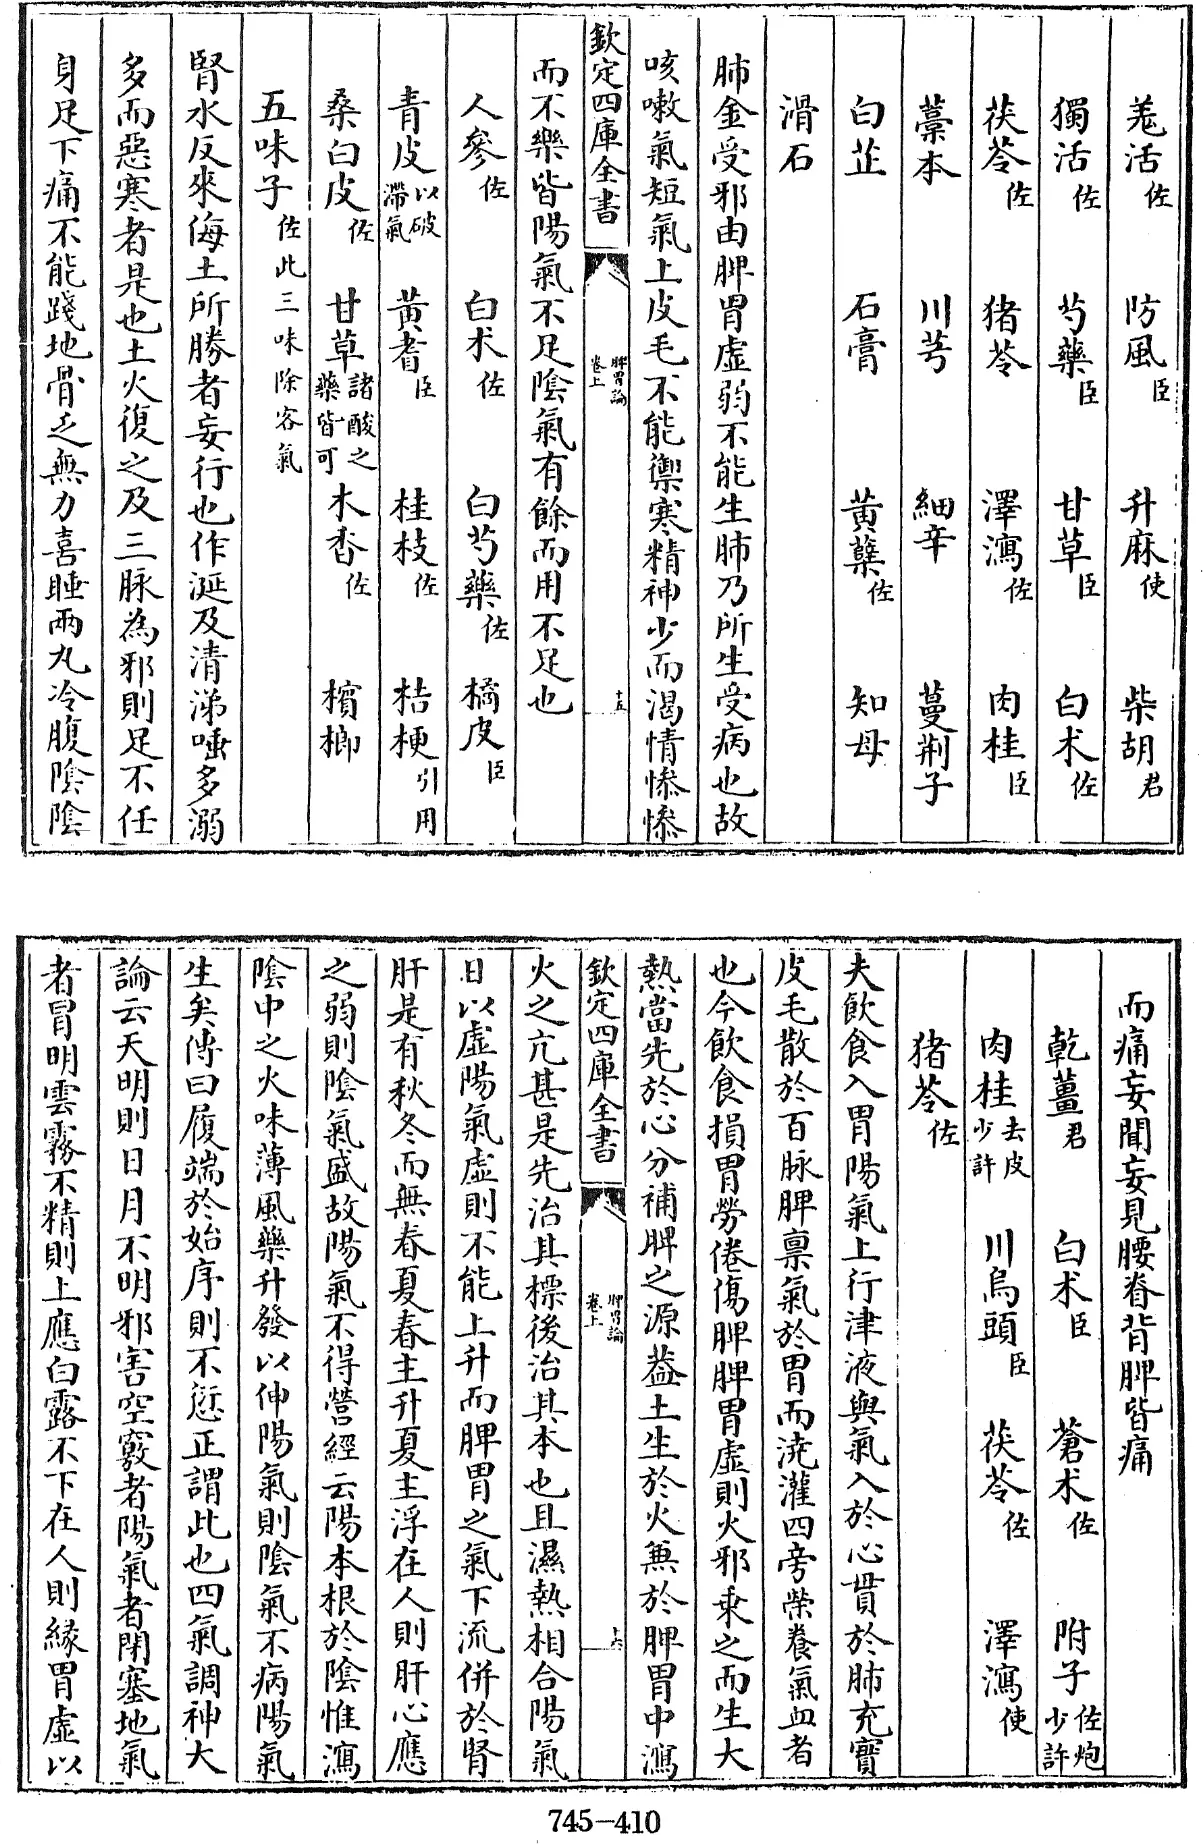 羗活佐　防風臣　升麻使　柴胡君
獨活佐　芍藥臣　甘草臣　白术佐
茯苓佐　猪苓　澤瀉佐　肉桂臣
藁本　川芎　細辛　蔓荆子
白芷　石膏　黄蘗佐　知母
滑石
肺金受邪由脾胃虚弱不能生肺乃所生受病也故
咳嗽氣短氣上皮毛不能禦寒精神少而渴情惨惨
欽定四庫全書　脾胃論卷上　十五
而不樂皆陽氣不足隂氣有餘而用不足也
人參佐　白术佐　白芍藥佐　橘皮臣
青皮以破滯氣　黄耆臣　桂枝佐　桔梗引用
桑白皮佐　甘草諸酸之藥皆可　木香佐　檳榔
五味子佐此三味除客氣
腎水反來侮土所勝者妄行也作涎及清涕唾多溺
多而惡寒者是也土火復之及三脉為邪則足不任
身足下痛不能踐地骨乏無力喜睡兩丸冷腹隂隂
而痛妄聞妄見腰脊背胛皆痛
乾薑君　白术臣　蒼术佐　附子佐炮少許
肉桂去皮少許　川烏頭臣　茯苓佐　澤瀉使
猪苓佐
夫飲食入胃陽氣上行津液與氣入於心貫於肺充實
皮毛散於百脉脾禀氣於胃而澆灌四旁榮養氣血者
也今飲食損胃勞倦傷脾脾胃虚則火邪乘之而生大
熱當先於心分補脾之源葢土生於火兼於脾胃中瀉
欽定四庫全書　脾胃論卷上　十六
火之亢甚是先治其標後治其本也且濕熱相合陽氣
日以虚陽氣虚則不能上升而脾胃之氣下流併於腎
肝是有秋冬而無春夏春主升夏主浮在人則肝心應
之弱則隂氣盛故陽氣不得營經云陽本根於隂惟瀉
隂中之火味薄風藥升發以伸陽氣則隂氣不病陽氣
生矣傳曰履端於始序則不愆正謂此也四氣調神大
論云天明則日月不明邪害空竅者陽氣者閉塞地氣
者冒明雲霧不精則上應白露不下在人則緣胃虚以
745-410